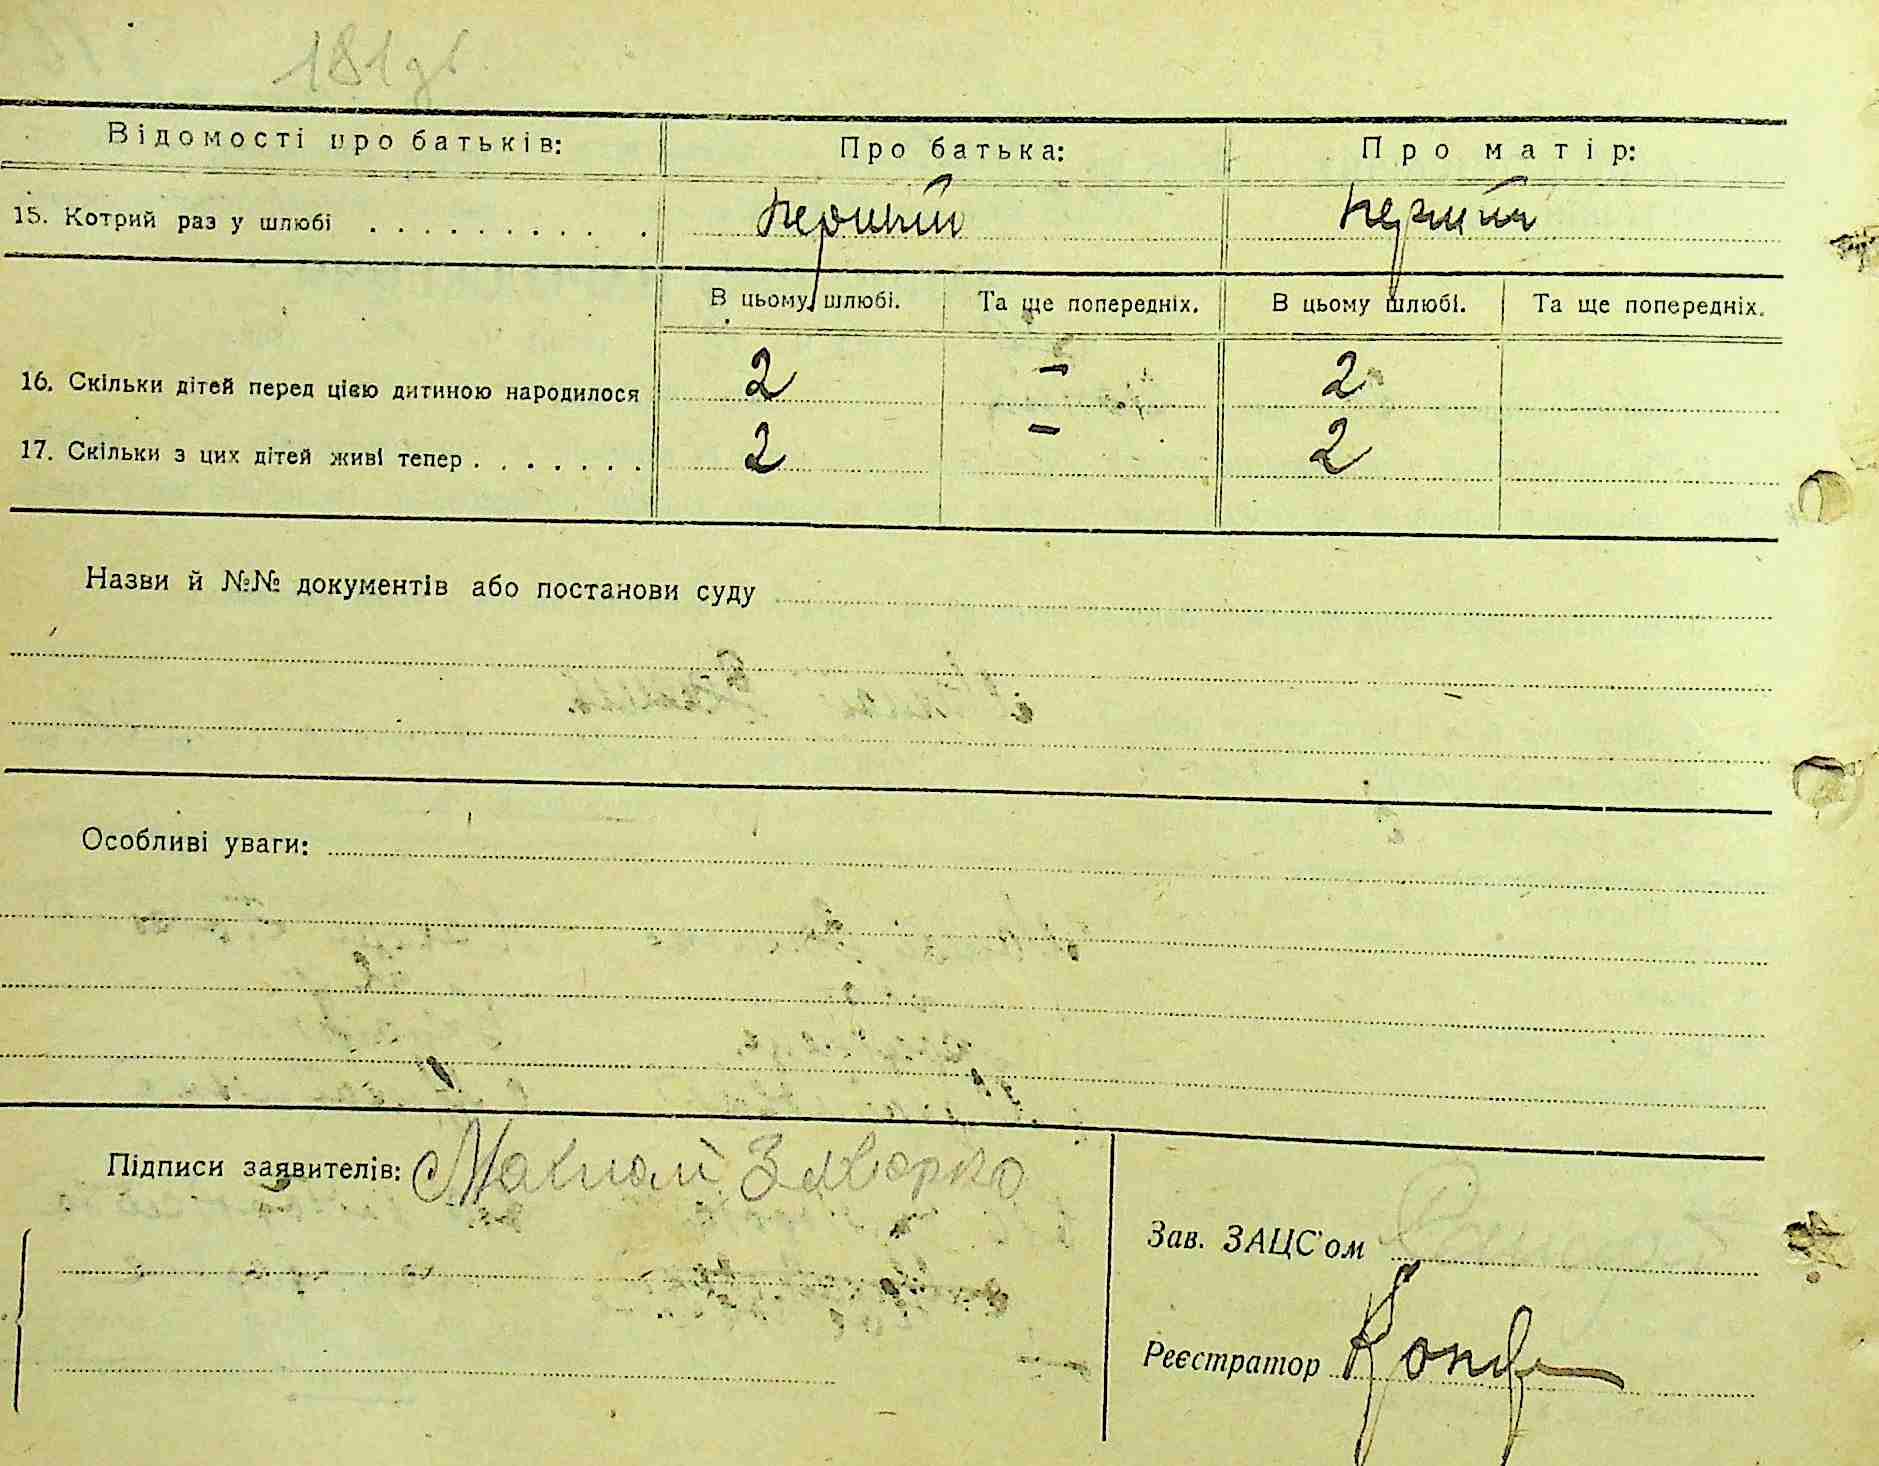 181 зв
Відомості про батьків: Про батька: Про матір:
15. Котрий раз у шлюбі . . . . . . . . . . . перший перший
В цьому шлюбі. Та ще попередніх. В цьому шлюбі. Та ще попередніх.
16. Скільки дітей перед цією дитиною народилося 2 – 2
17. Скільки з цих дітей живі тепер . . . . . . . 2 – 2
Назви й №№ документів або постанови суду
Особливі уваги:
Підписи заявителів:
Зав. ЗАЦС'ом
Реєстратор